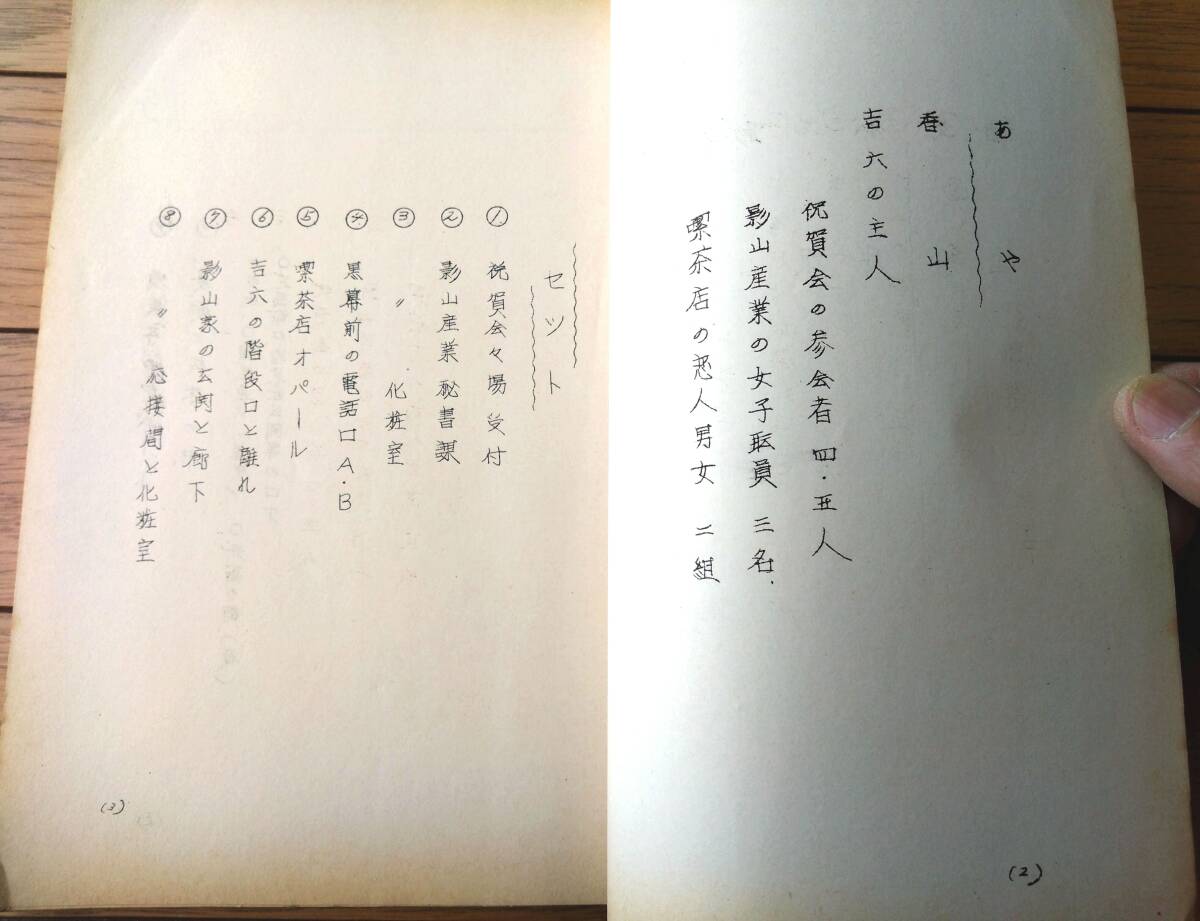 あや
香山
吉六の主人
祝賀会の参会者 四・五人
影山産業の女子職員 三名.
喫茶店の恋人男女 二組
(2)
セツト
① 祝賀会々場受付
② 影山産業秘書課
③ 〃 化粧室
④ 黒幕前の電話口A・B
⑤ 喫茶店オパール
⑥ 吉六の階段口と離れ
⑦ 影山家の玄関と廊下
⑧ 〃 応接間と化粧室
(3)